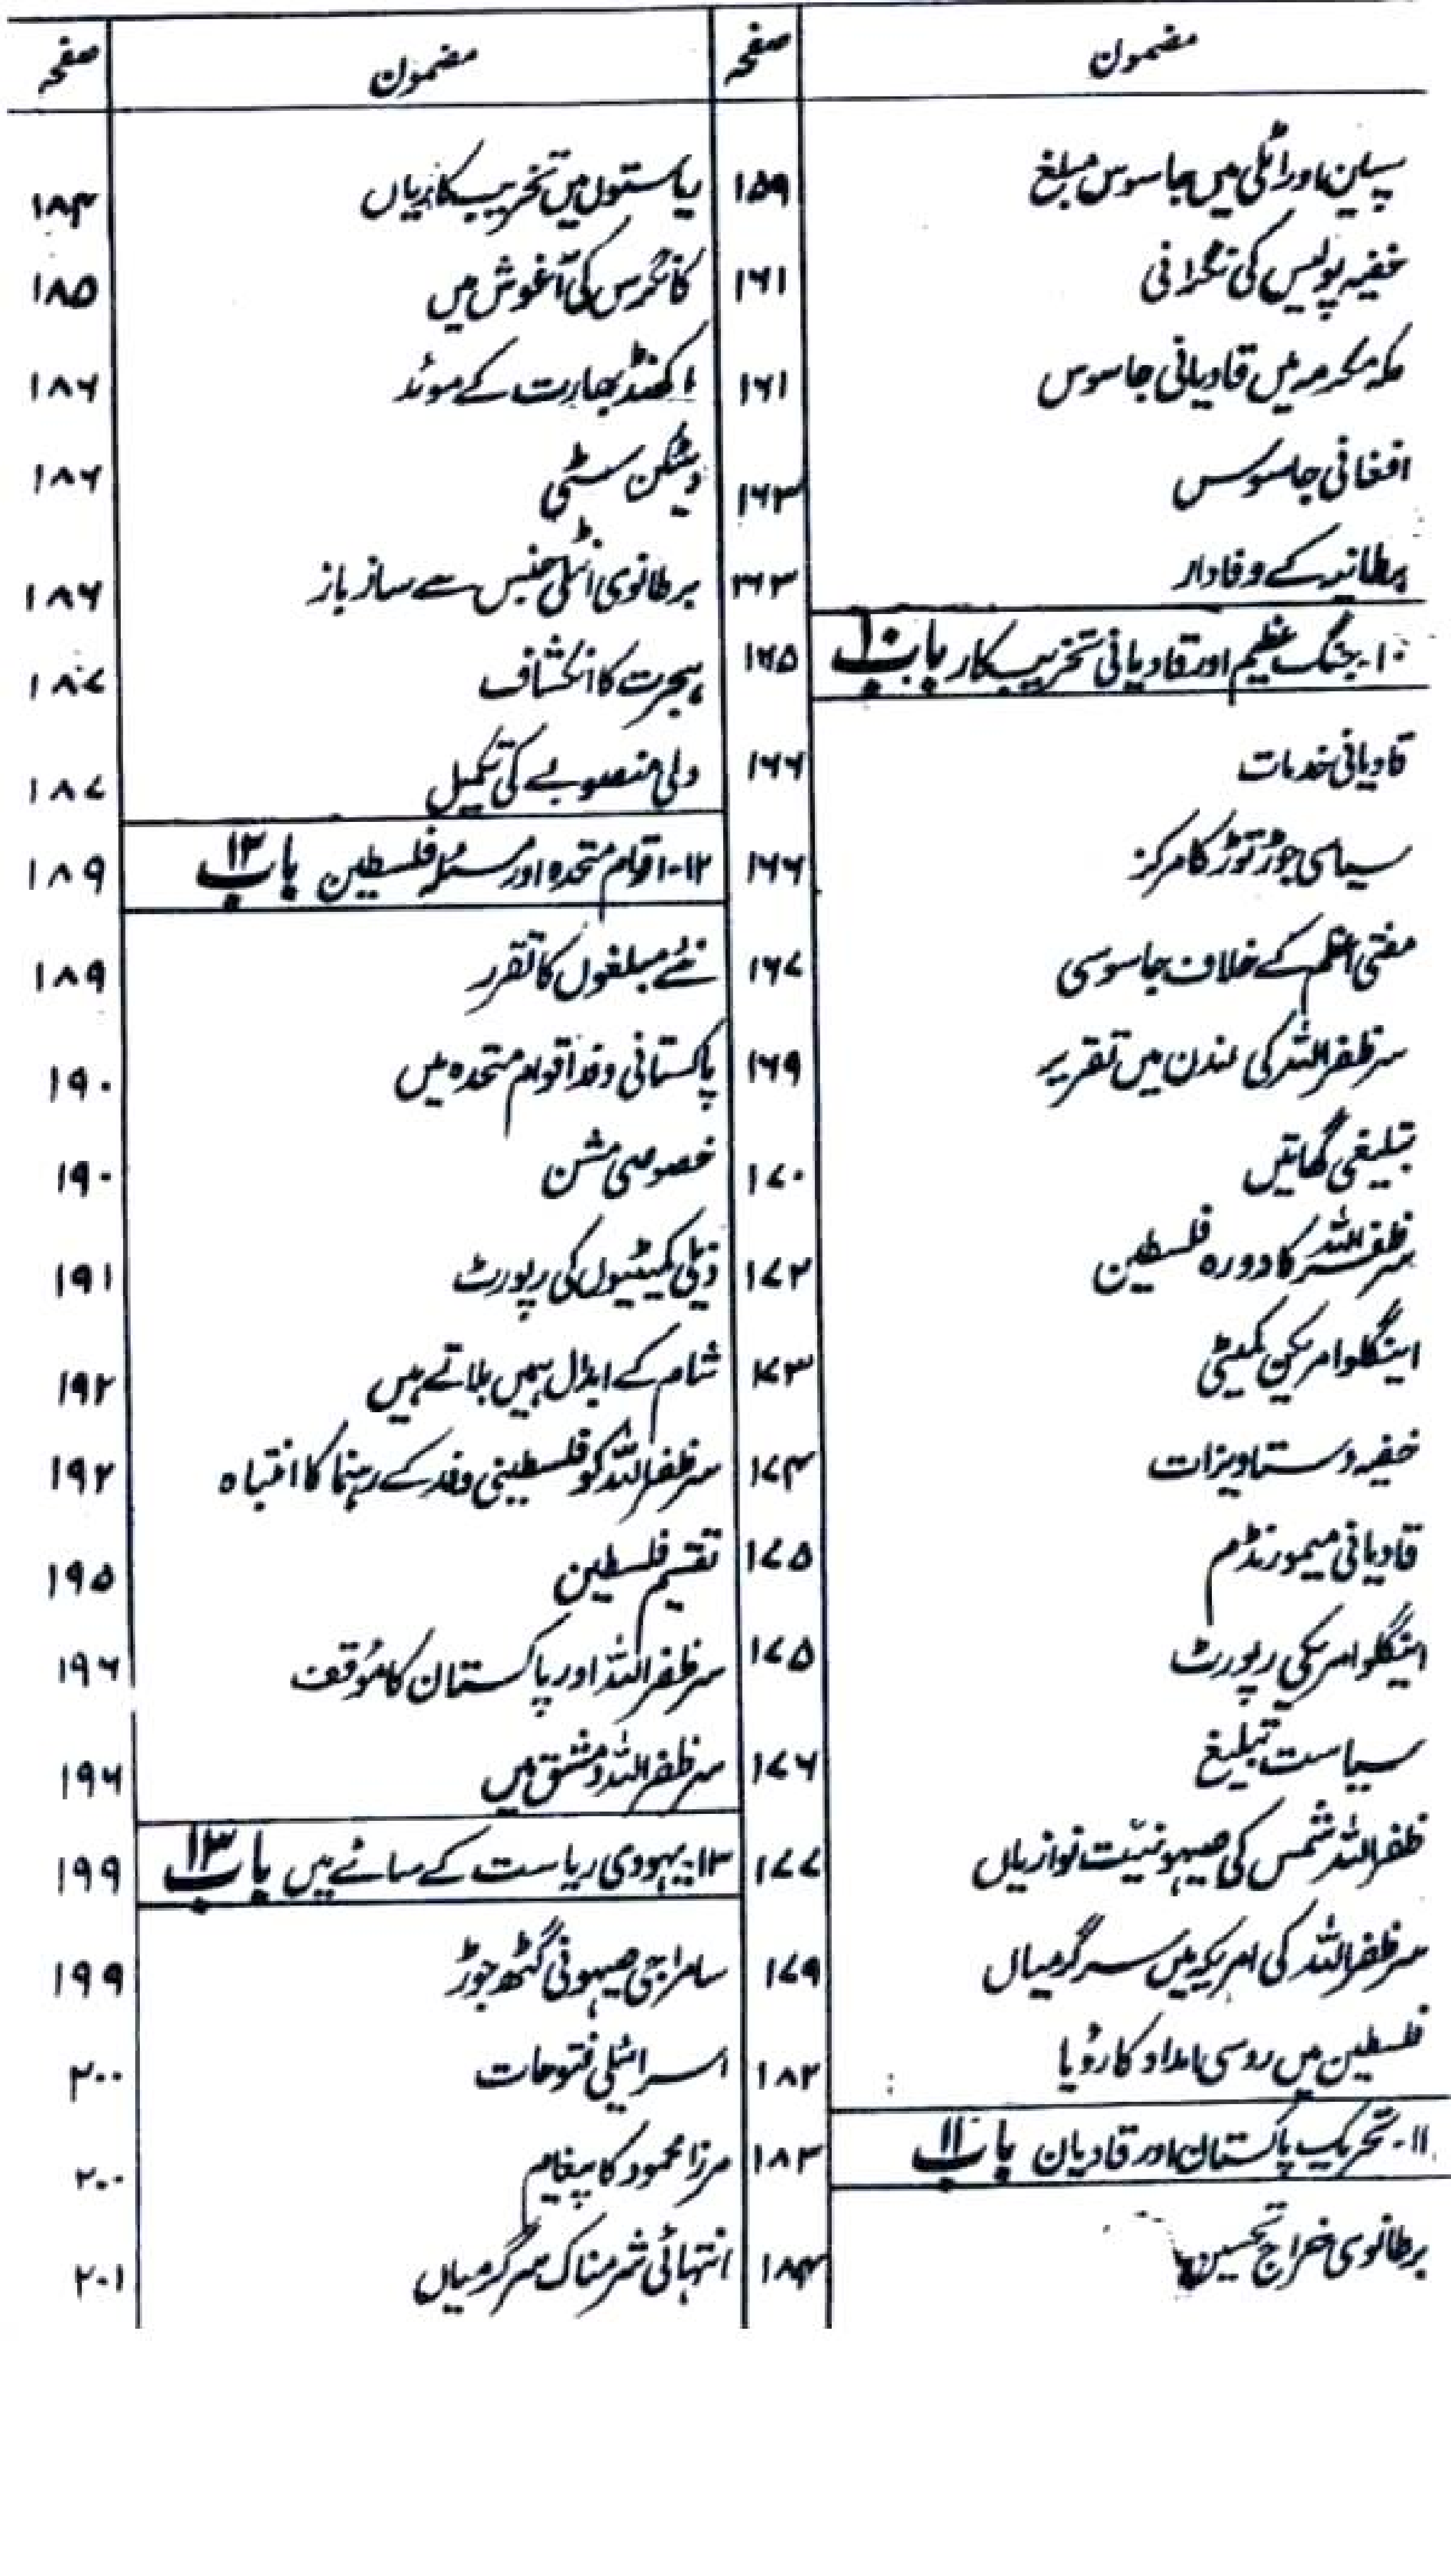 مضمون صفحہ
سپین اور اٹلی میں جاسوس مبلغ ۱۵۹
خفیہ پولیس کی نگرانی ۱۶۱
مکہ مکرمہ میں قادیانی جاسوس ۱۶۱
افغانی جاسوس ۱۶۳
برطانیہ کے وفادار ۱۶۳
۱۰-جنگ عظیم اور قادیانی تخریب کار باب ۱۰ ۱۶۵
قادیانی خدمات ۱۶۶
سیاسی جوڑ توڑ کا مرکز ۱۶۶
مفتی اعظم کے خلاف جاسوسی ۱۶۷
سر ظفر اللہ کی لندن میں تقریر ۱۶۹
تبلیغی گھاتیں ۱۷۰
سر ظفر اللہ کا دورہ فلسطین ۱۷۲
اینگلو امریکن کمیٹی ۱۷۳
خفیہ دستاویزات ۱۷۴
قادیانی میمورنڈم ۱۷۵
اینگلو امریکی رپورٹ ۱۷۵
سیاست تبلیغ ۱۷۶
ظفر اللہ شمس کی صیہونیت نوازیاں ۱۷۷
سر ظفر اللہ کی امریکہ میں سرگرمیاں ۱۷۹
فلسطین میں روسی امداد کا رؤیا ۱۸۲
۱۱-تحریک پاکستان اور قادیان باب ۱۱ ۱۸۳
برطانوی خراج تحسین ۱۸۴
مضمون صفحہ
ریاستوں میں تخریب کاریاں ۱۸۴
کانگرس کی آغوش میں ۱۸۵
اکھنڈ بھارت کے موئد ۱۸۶
ویٹیکن سٹی ۱۸۶
برطانوی انٹیلی جنس سے ساز باز ۱۸۶
ہجرت کا انکشاف ۱۸۷
دلی منصوبے کی تکمیل ۱۸۷
۱۲-اقوام متحدہ اور مسئلہ فلسطین باب ۱۲ ۱۸۹
نئے مبلغوں کا تقرر ۱۸۹
پاکستانی وفد اقوام متحدہ میں ۱۹۰
خصوصی مشن ۱۹۰
ذیلی کمیٹیوں کی رپورٹ ۱۹۱
شام کے ابدال ہمیں بلاتے ہیں ۱۹۲
سر ظفر اللہ کو فلسطینی وفد کے رہنما کا انتباہ ۱۹۲
تقسیم فلسطین ۱۹۵
سر ظفر اللہ اور پاکستان کا مؤقف ۱۹۶
سر ظفر اللہ دمشق میں ۱۹۶
۱۳-یہودی ریاست کے سائے میں باب ۱۳ ۱۹۹
سامراجی صیہونی گٹھ جوڑ ۱۹۹
اسرائیلی فتوحات ۲۰۰
مرزا محمود کا پیغام ۲۰۰
انتہائی شرمناک سرگرمیاں ۲۰۱